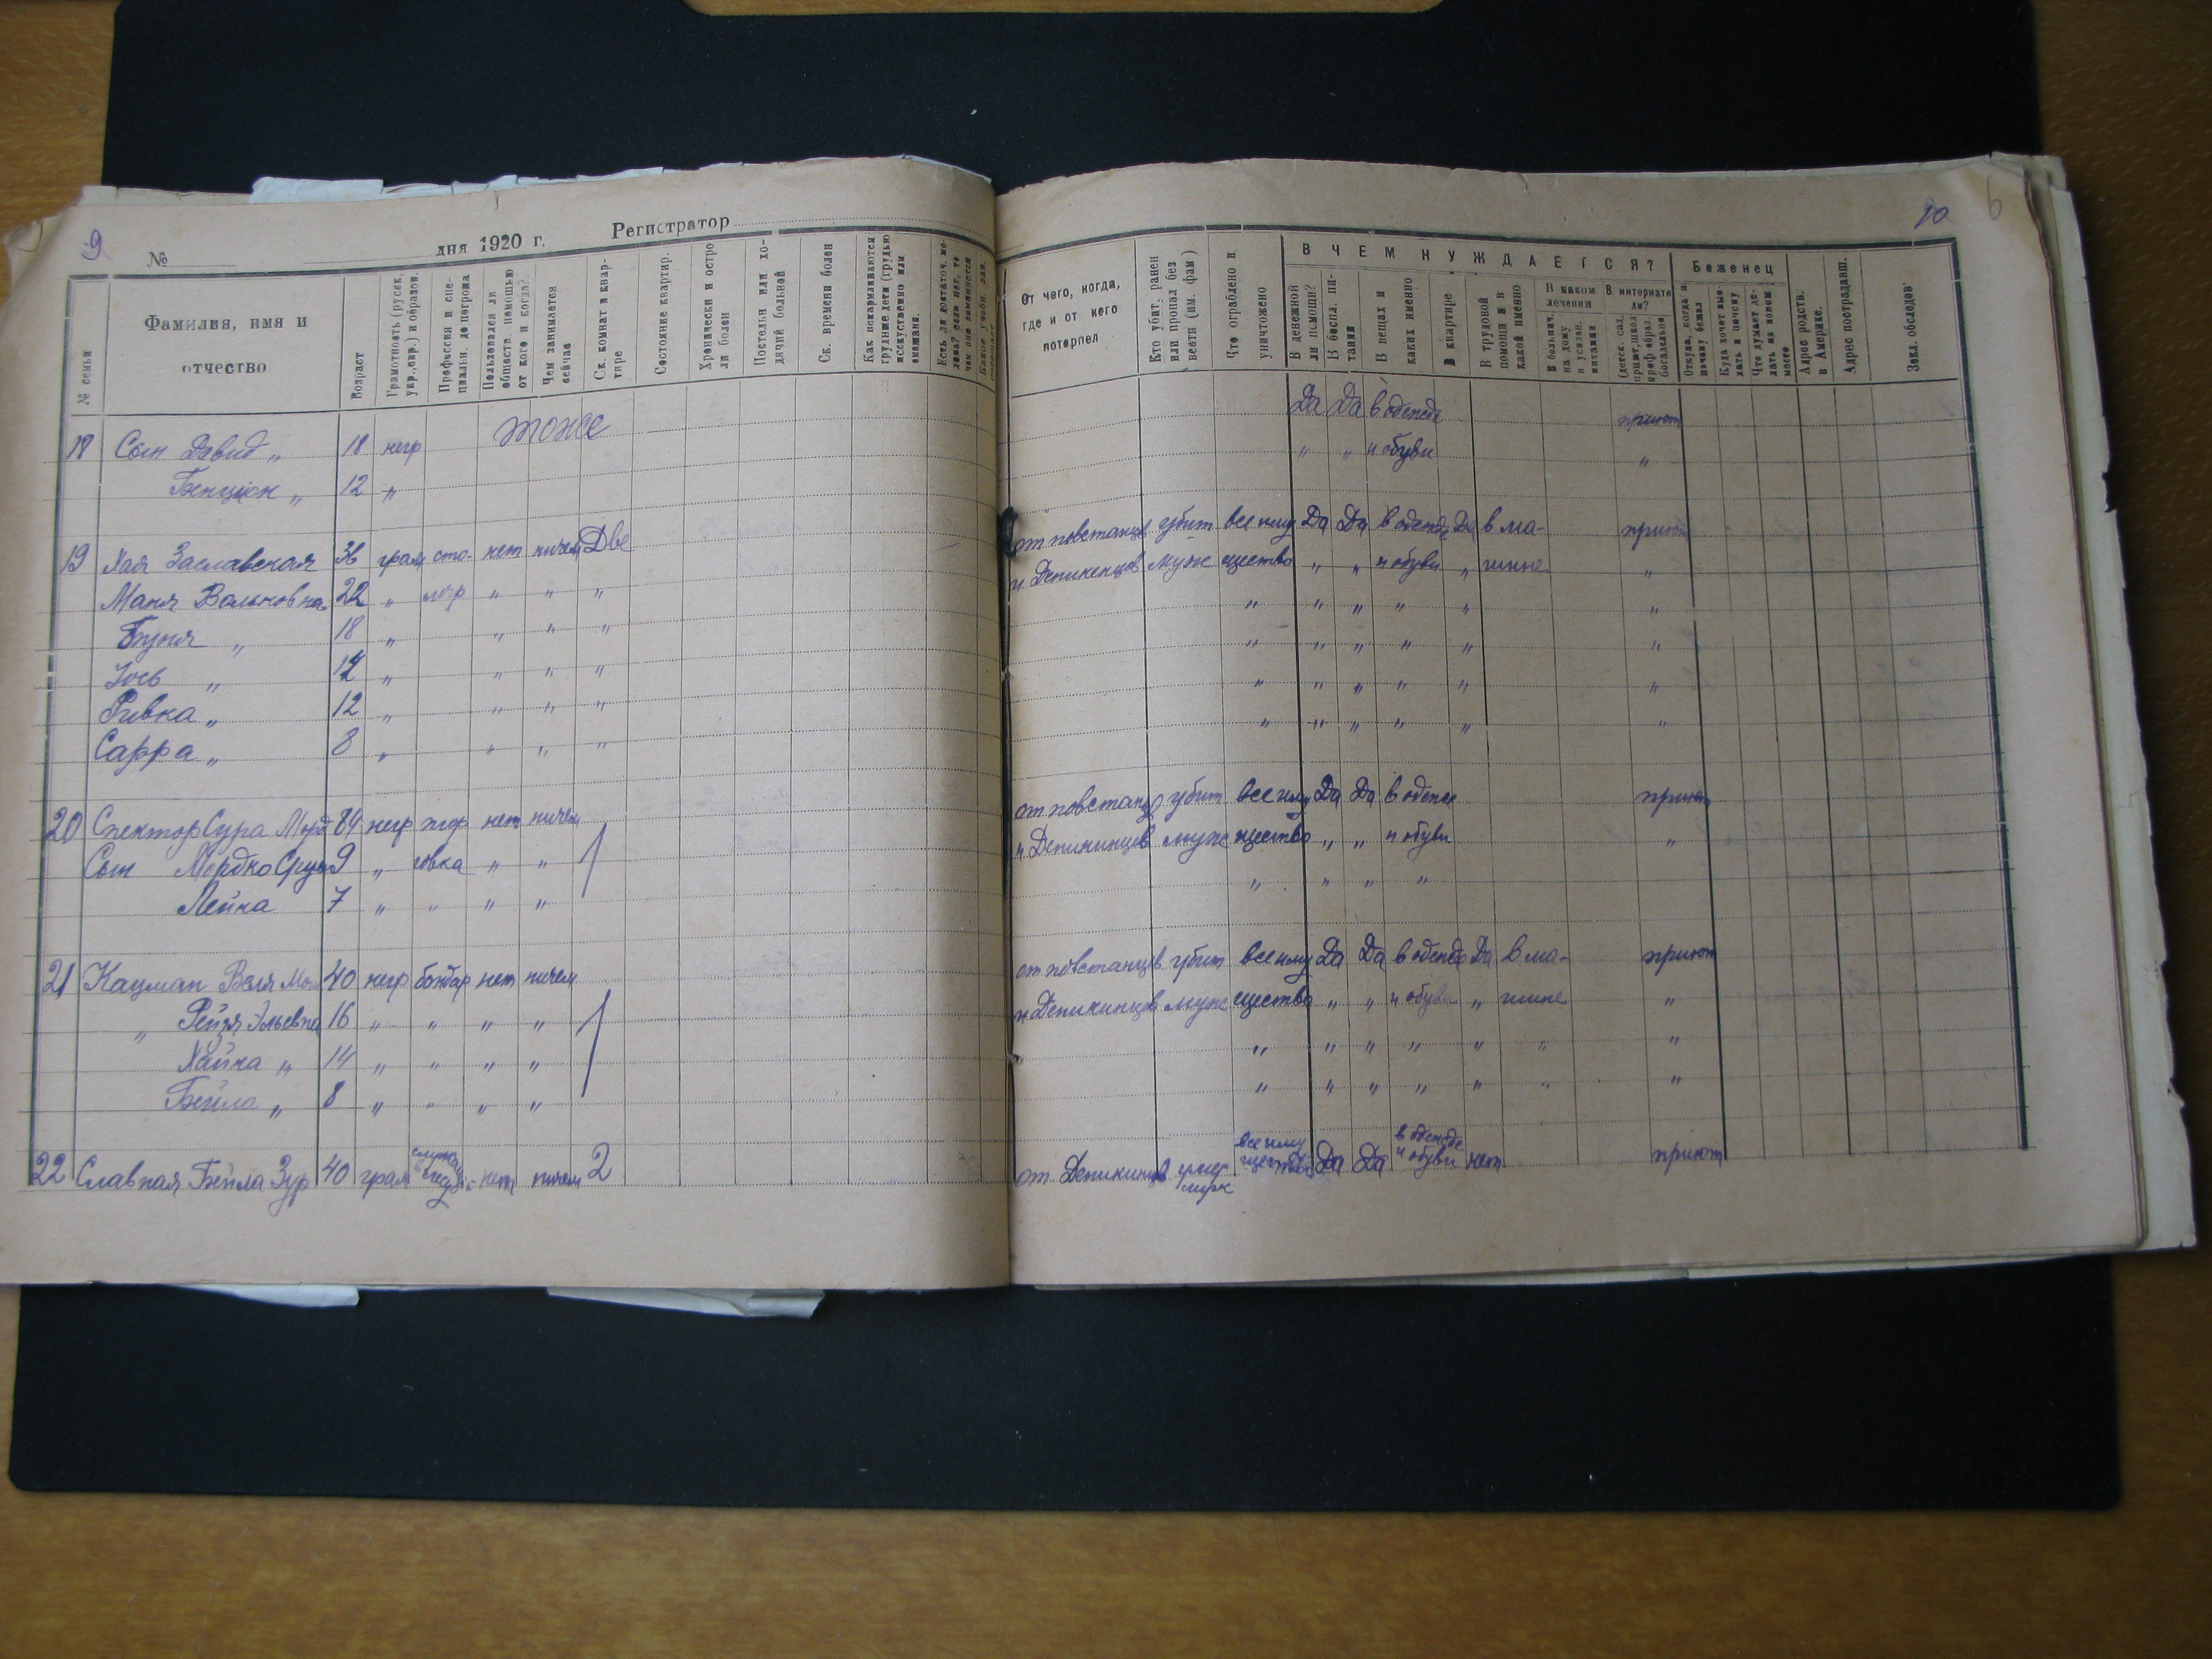 9
№ дня 1920 г. Регистратор
№ семьи
Фамилия, имя и отчество
Возраст
Грамотность (русск., укр., евр.) и образов.
Профессия и специальн. до погрома
Пользовался ли обществ. помощью от кого и когда?
Чем занимается сейчас
Ск. комнат в квартире
Состояние квартир.
Хронически и остро ли болен
Постельн. или ходячий больной
Ск. времени болен
Как вскармливаются грудные дети (грудью искусственно или смешани.
18 Сын Давид „ 18 негр тоже
Бенцион „ 12 „
19 Хая Заславская 36 грам сто- нет ничем Две
Маня Вольковна 22 „ ляр „ „ „
Буня „ 18 „ „ „ „
Иось „ 14 „ „ „ „
Ривка „ 12 „ „ „ „
Сарра „ 8 „ „ „ „
20 Спектор Сура Морд 84 негр торг нет ничем
Сын Мордко Сруль 9 „ овка „ „ 1
Лейка 7 „ „ „ „
21 Кацман Веля Мош 40 негр бондар нет ничем
„ Рейзя Эльевна 16 „ „ „ „ 1
Хайка „ 14 „ „ „ „
Бейла „ 8 „ „ „ „
22 Славная Бейла Зур 40 грам нет ничем 2
10
6
От чего, когда, где и от кего потерпел
Кто убит, ранен или пропал без вести (им. фам)
Что ограблено и уничтожено
В ЧЕМ НУЖДАЕТСЯ?
В денежной ли помощи?
В беспл. питании
В вещах и каких именно
В квартире
В трудовой помощи и в какой именно
В каком лечении
В больнич. на дому и усилен. питании
В интернате ли?
(детск. сад, приют, школ проф образ. богадельне
Беженец
Откуда, когда и почему бежал
Куда хочет выехать и почему
Что думает делать на новом месте
Адрес родств. в Америке.
Адрес пострадавш.
Закл. обследов.
Да Да в одежде приют
„ „ и обуви „
от повстанцев убит все иму Да Да в одежде Да в ма- приют
и Деникенцев муж щество „ „ и обуви „ шине „
„ „ „ „ „ „
„ „ „ „ „ „
„ „ „ „ „ „
„ „ „ „ „ „
от повстанц убит все иму Да Да в одежде приют
и Деникинцев муж щество „ „ и обуви „
„ „ „ „
от повстанцев убит все иму Да Да в одежде Да в ма- приют
и Деникинцев муж щество „ „ и обуви „ шине „
„ „ „ „ „ „ „
„ „ „ „ „ „ „
все иму в одежде
от Деникинцев умер щество Да Да и обуви нет приют
муж